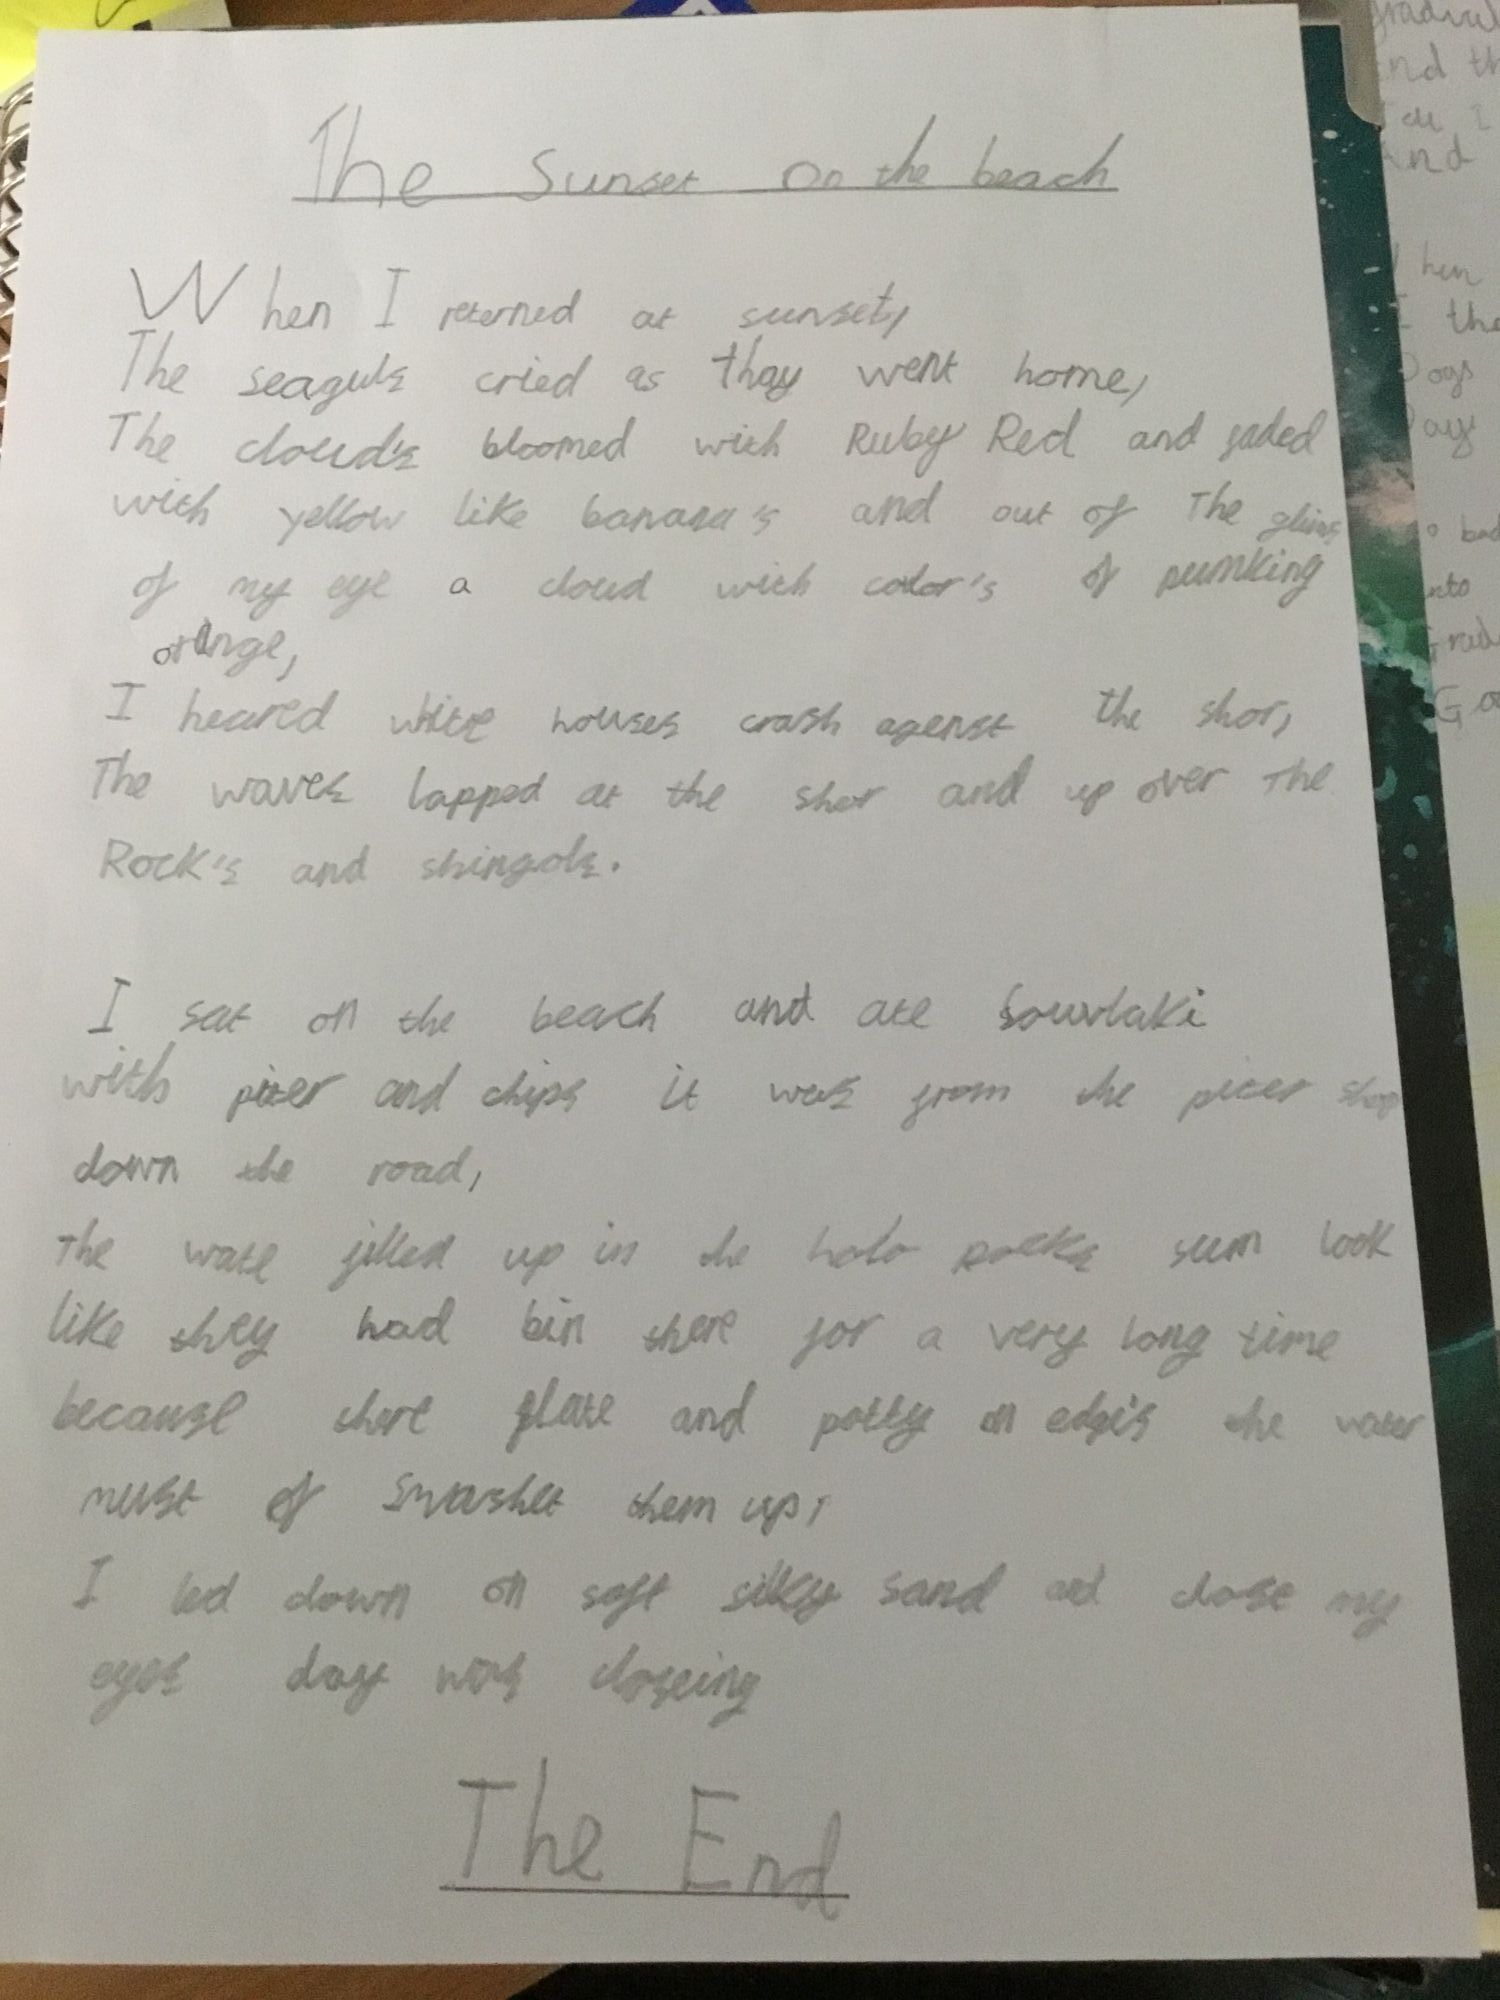 The Sunset On the beach
When I returned at sunset,
The seaguls cried as thay went home,
The cloud's bloomed with Ruby Red and faded
with yellow like banana's and out of The
of my eye a cloud with color's of pumking
orange,
I heared white houses crash agenst the shor,
The waves lapped at the shor and up over The
Rock's and shingols.
I sat on the beach and ate Souvlaki
with pizer and chips it was from the pizer shop
down the road,
The wate filled up in the holo Rocks sum look
like they had bin there for a very long time
because there flate and potty on edgis the water
must of Smashet them up,
I led down on soft silky sand and close my
eyes day was closeing
The End
gradu
nd th
I
And
hen
I the
Dogs
Days
bad
nto
Grad
Go